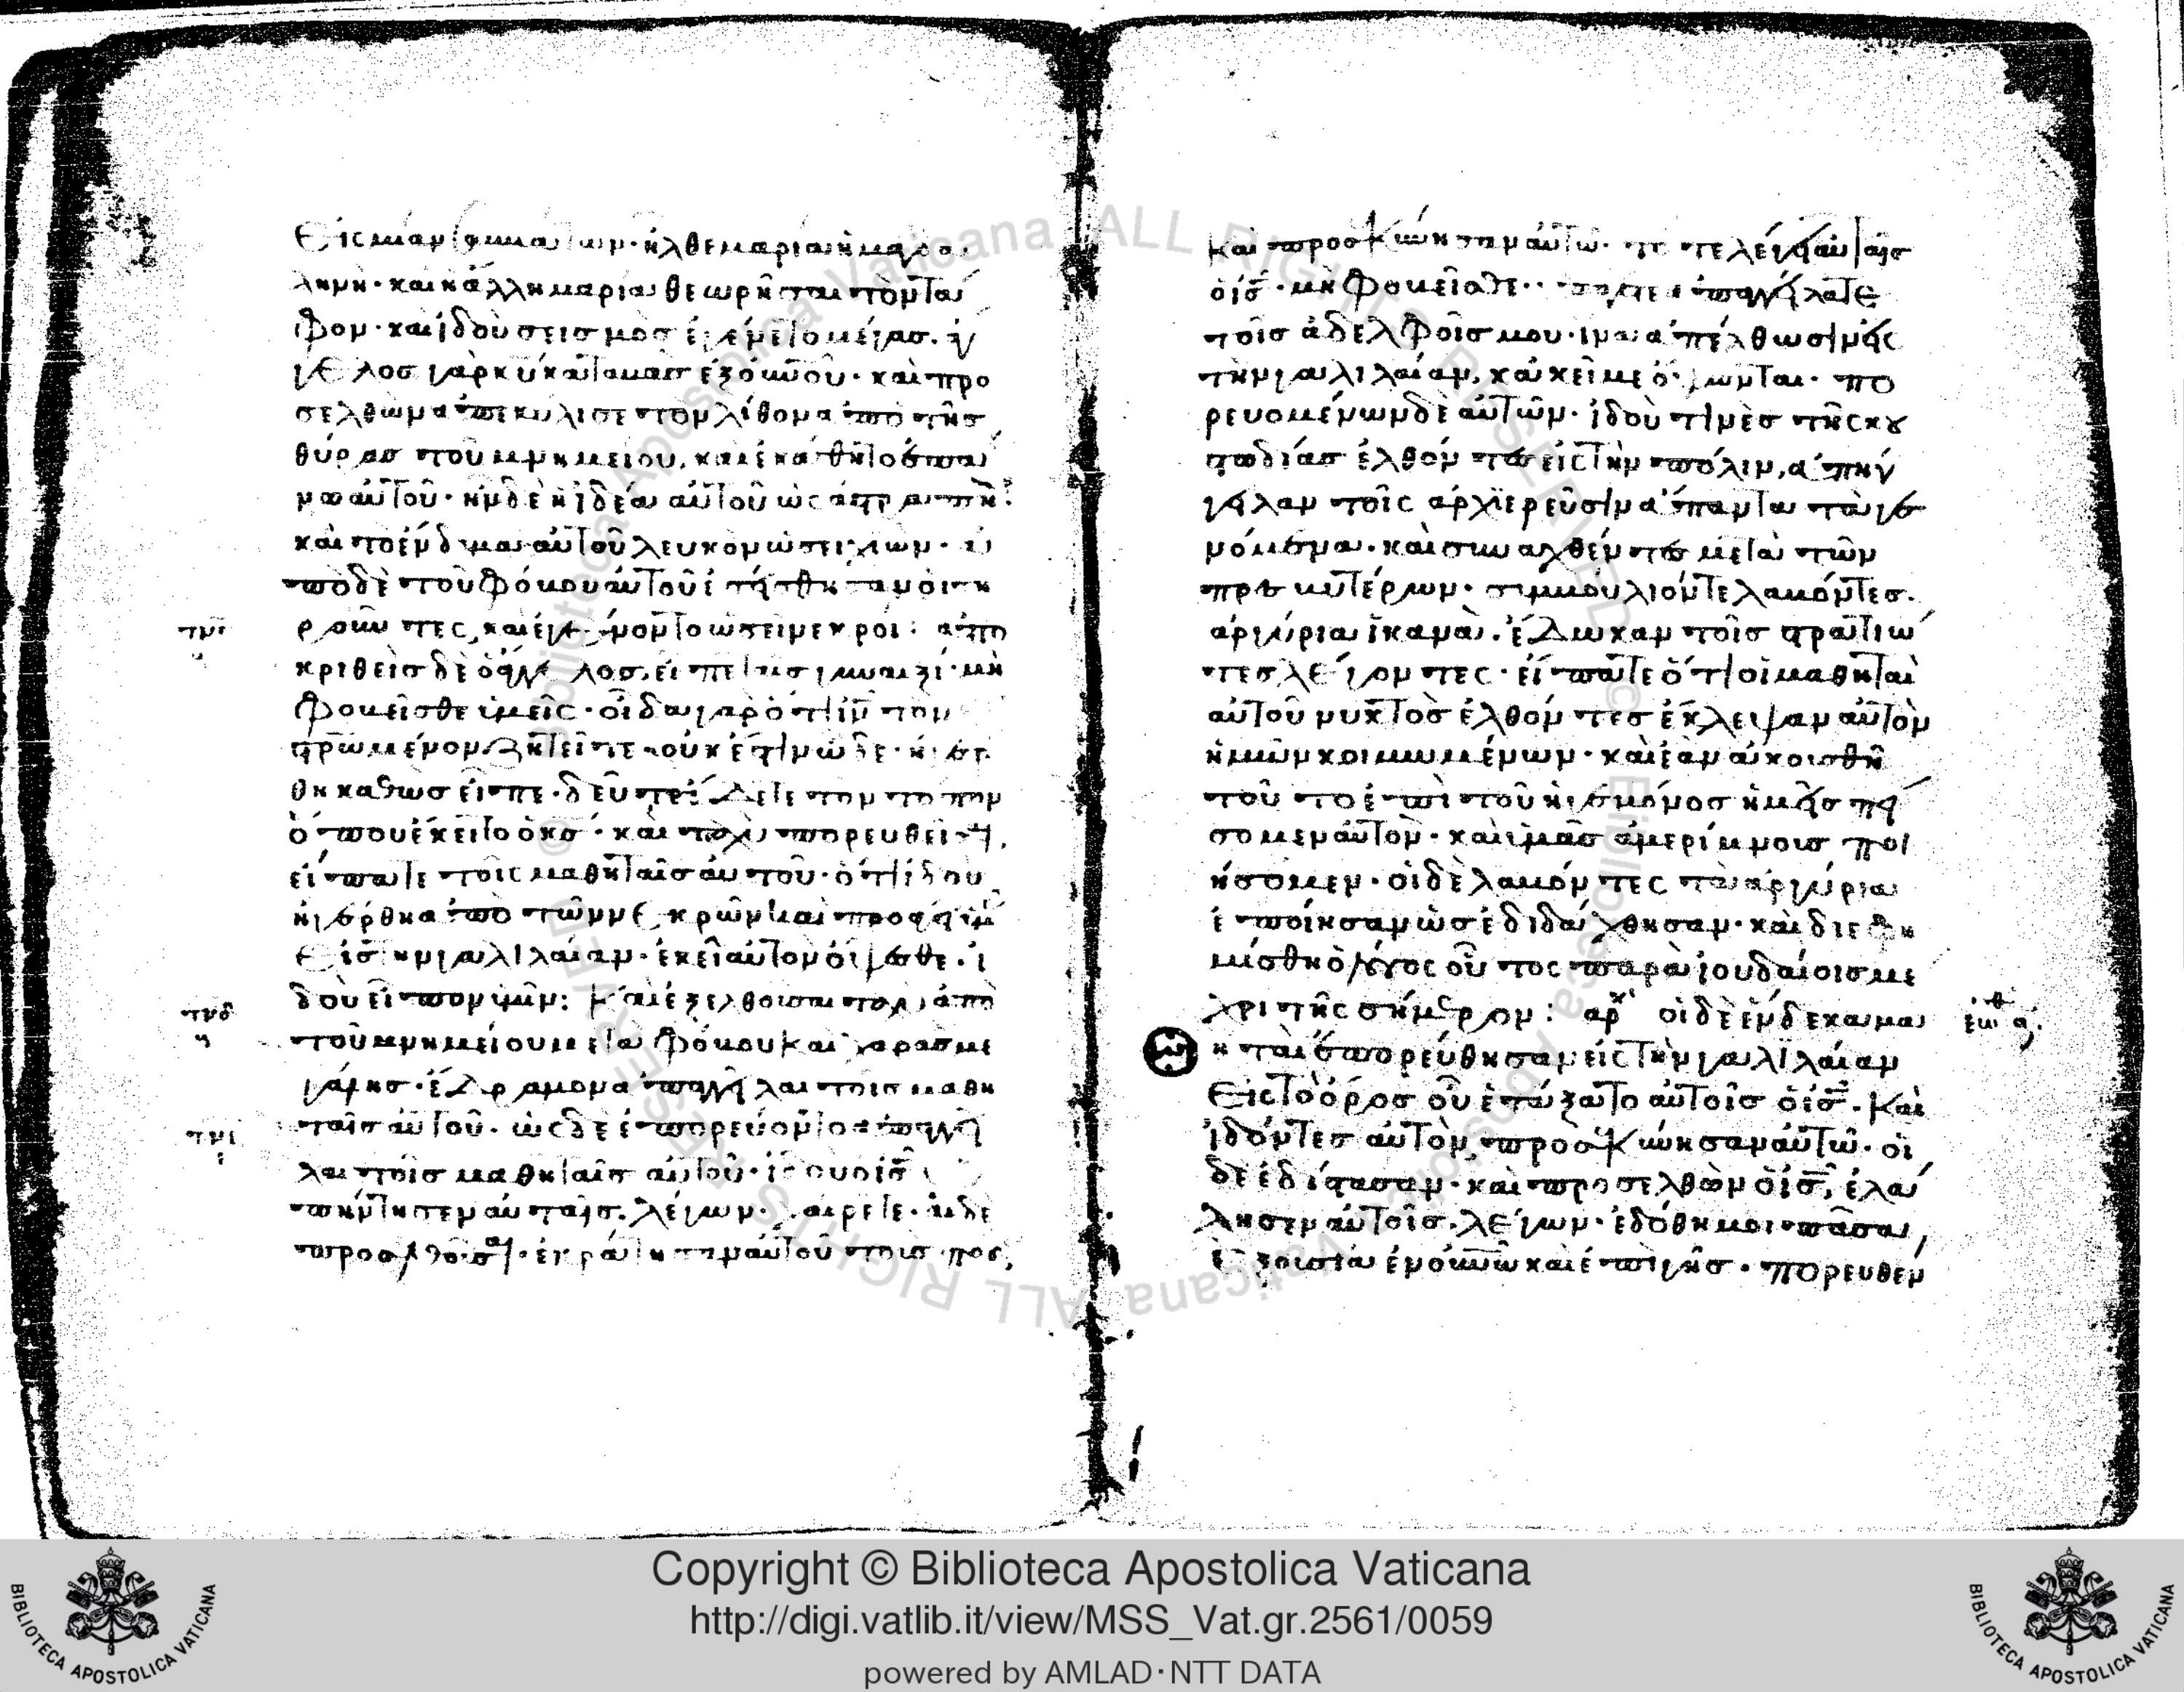 εἰς μίαν σαββάτων· ἦλθε μαρία ἡ μαγδα
ληνη· καὶ ἡ ἄλλη μαρία θεωρῆσαι τὸν τά
φον· καὶ ἰδοὺ σεισμος ἐγένετο μέγας. ἄγ
γελος γὰρ κυ καταβὰς ἐξ οὐνοῦ· καὶ προ
σελθὼν ἀπεκύλισε τον λίθον ἀπὸ τῆς
θύρας τοῦ μνημείου, καὶ ἐκάθητο ἐπά
νω αὐτοῦ· ἦν δὲ ἡ ἰδέα αὐτοῦ ὡς ἀστραπὴ·
καὶ τὸ ἔνδυμα αὐτοῦ λευκον ὡσει χιων· ἀ
πὸ δὲ τοῦ φόβου αὐτοῦ ἐσείσθησαν οἱ τη
ροῦντες, καὶ ἐγένοντο ὡσεὶ νεκροι: ἀπο
κριθεὶς δὲ ὁ ἄγγελος, εἶπε ταῖς γυναιξί· μὴ
φοβεῖσθε ὑμεῖς· οἶδα γὰρ ὅτι ἰν τον
ἐσταυρωμένον ζητεῖτε· οὐκ ἔστιν ὧδε· ἠγέρ
θη καθὼς εἶπε· δεῦτε ἴδετε τον τοπον
ὅπου ἔκειτο ὁ κς· καὶ ταχὺ πορευθεῖσαι,
εἴπατε τοῖς μαθηταῖς αὐτοῦ· ὅτι ἰδοὺ
ἠγέρθη ἀπὸ τῶν νεκρῶν καὶ προάγει ὑμᾶς
εἰς τὴν γαλιλαίαν· ἐκεῖ αὐτὸν ὄψεσθε· ἰ
δοὺ εἶπον ὑμῖν: καὶ ἐξελθοῦσαι ταχὺ ἀπὸ
τοῦ μνημείου μετὰ φόβου καὶ χαρᾶς με
γάλης· ἔδραμον ἀπαγγεῖλαι τοῖς μαθη
ταῖς αὐτοῦ. ὡς δὲ ἐπορεύοντο ἀπαγγεῖ
λαι τοῖς μαθηταῖς αὐτοῦ· ἰδοὺ ὁ ις
ἀπήντησεν αὐταῖς. λέγων· χαίρετε· αἱ δὲ
προσελθοῦσαι· ἐκράτησαν αὐτοῦ τους πόδας,
τνβ
τνδ
η
τνε
ι
καὶ προσεκύνησαν αὐτῶ· τότε λέγει αὐταῖς
ὁ ις· μὴ φοβεῖσθε· ὑπάγετε ἀπαγγείλατε
τοῖς ἀδελφοῖς μου· ἵνα ἀπέλθωσιν εἰς
τὴν γαλιλαίαν, κἀκεῖ με ὄψωνται· πο
ρευομένων δὲ αὐτῶν· ἰδοὺ τινὲς τῆς κου
στωδίας ἐλθόντες εἰς τὴν πόλιν, ἀπήγ
γειλαν τοῖς ἀρχιερεῦσιν ἅπαντα τὰ γε
νόμενα· καὶ συναχθέντες μετὰ τῶν
πρεσβυτέρων· συμβούλιόν τε λαβόντες.
ἀργύρια ἱκανὰ. ἔδωκαν τοῖς στρατιώ
ταις λέγοντες· εἴπατε ὅτι οἱ μαθηταὶ
αὐτοῦ νυκτὸς ἐλθόντες ἔκλεψαν αὐτὸν
ἡμῶν κοιμωμένων· καὶ ἐὰν ἀκουσθῆ
τοῦτο ἐπὶ τοῦ ἡγεμόνος ἡμεῖς πεί
σομεν αὐτὸν· καὶ ὑμᾶς ἀμερίμνους ποι
ήσομεν· οἱ δὲ λαβόντες τὰ ἀργύρια
ἐποίησαν ὡς ἐδιδάχθησαν· καὶ διεφη
μίσθη ὁ λόγος οὗτος παρὰ ἰουδαίοις μέ
χρι τῆς σήμερον: αρχ οἱ δὲ ἕνδεκα μα
θηταὶ ἐπορεύθησαν εἰς τὴν γαλιλαίαν
εἰς τὸ ὄρος οὗ ἐτάξατο αὐτοῖς ὁ ις. καὶ
ἰδόντες αὐτὸν, προσεκύνησαν αὐτῶ· οἱ
δὲ ἐδίστασαν· καὶ προσελθὼν ὁ ις, ἐλά
λησεν αὐτοῖς, λέγων· ἐδόθη μοι πᾶσα
ἐξουσία ἐν οὐνῶ καὶ ἐπὶ γῆς· πορευθέν
εωθ α